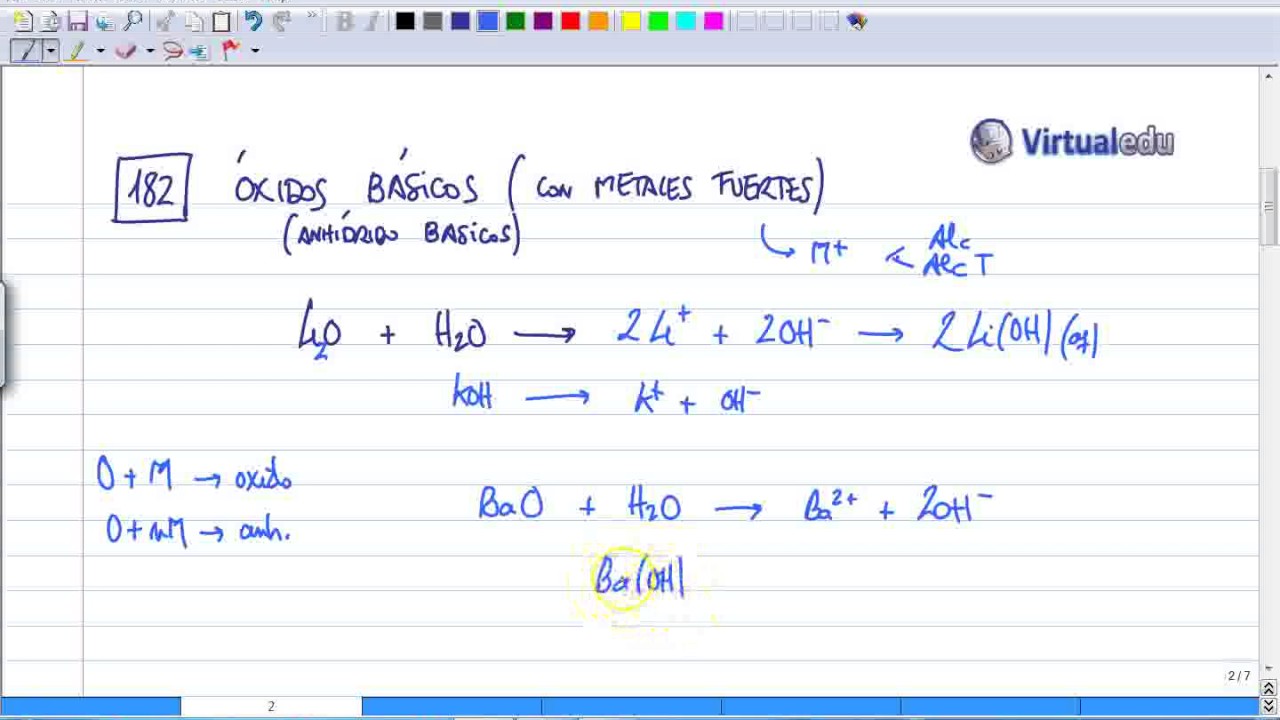 B I
Virtualedu
182 ÓXIDOS BÁSICOS (CON METALES FUERTES)
(ANHÍDRIDO BASICOS)
M+ < Alc
Alc T
Li2O + H2O → 2Li+ + 2OH- → 2Li(OH)
KOH → K+ + OH-
O + M → oxido
O + nM → anh.
BaO + H2O → Ba2+ + 2OH-
Ba(OH)
2/7
2